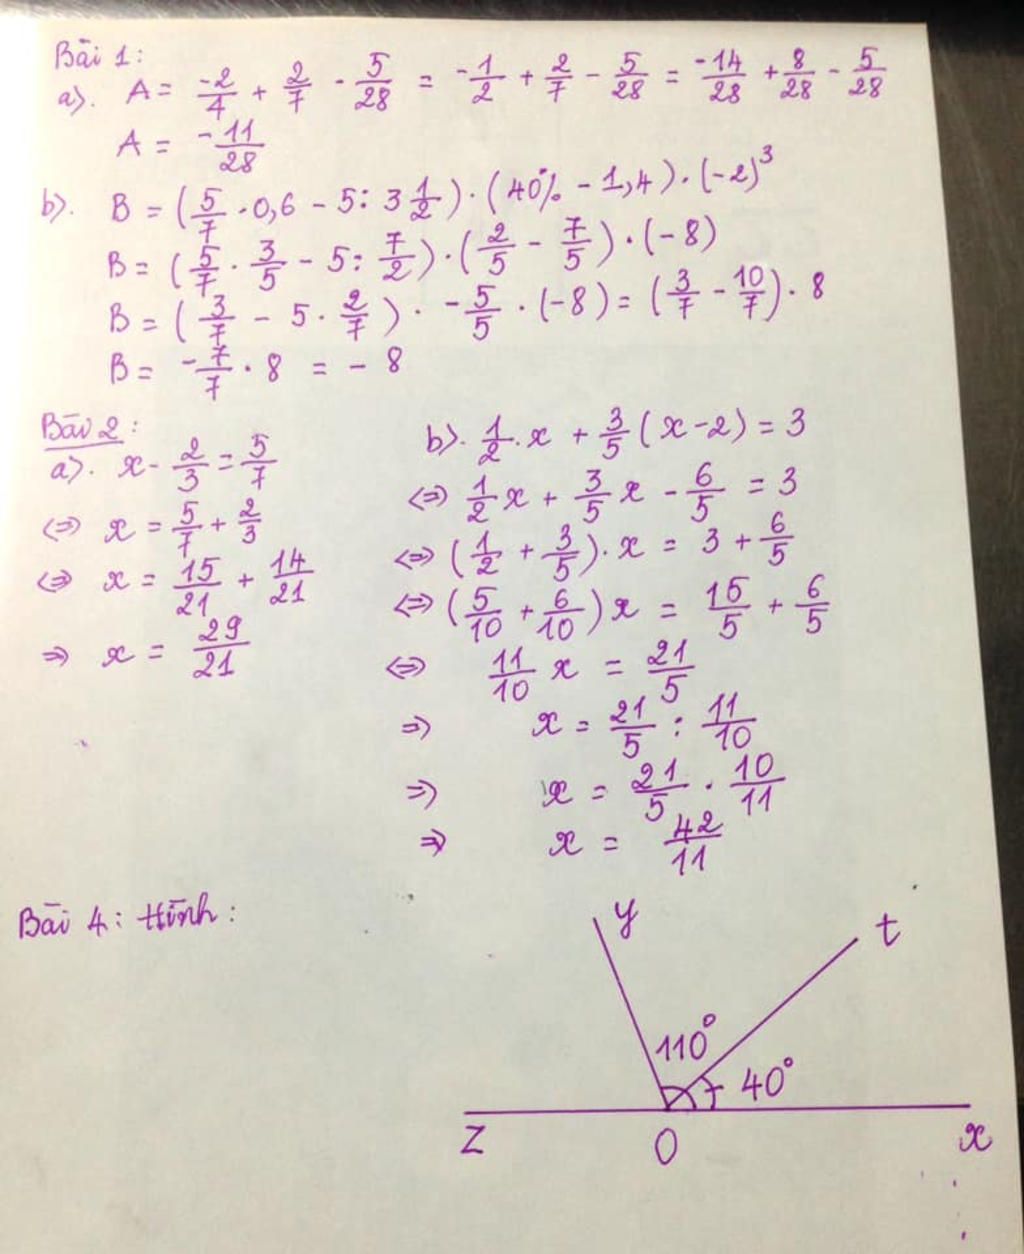 Bài 1:
a). A = -2/4 + 2/7 - 5/28 = -1/2 + 2/7 - 5/28 = -14/28 + 8/28 - 5/28
A = -11/28
b). B = (5/7 · 0,6 - 5 : 3 1/2) · (40% - 1,4) · (-2)³
B = (5/7 · 3/5 - 5 : 7/2) · (2/5 - 7/5) · (-8)
B = (3/7 - 5 · 2/7) · -5/5 · (-8) = (3/7 - 10/7) · 8
B = -7/7 · 8 = - 8
Bài 2:
a). x - 2/3 = 5/7
⇔ x = 5/7 + 2/3
⇔ x = 15/21 + 14/21
⇒ x = 29/21
b). 1/2 . x + 3/5 (x - 2) = 3
⇔ 1/2 x + 3/5 x - 6/5 = 3
⇔ (1/2 + 3/5) . x = 3 + 6/5
⇔ (5/10 + 6/10) x = 15/5 + 6/5
⇔ 11/10 x = 21/5
⇒ x = 21/5 : 11/10
⇒ x = 21/5 . 10/11
⇒ x = 42/11
Bài 4: Hình:
y
t
110°
40°
z O x